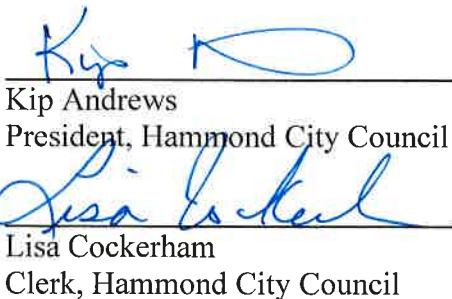 Kip
Kip Andrews
President, Hammond City Council
Lisa Cockerh
Lisa Cockerham
Clerk, Hammond City Council